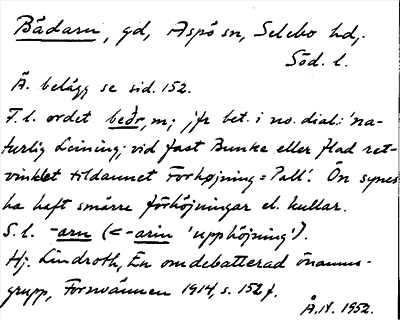 Bådarn, gd, Aspö sn, Selebo hd,
Söd. l.
Ä. belägg se sid. 152.
F. l. ordet beðr, m; jfr bet. i no. dial: 'na-
turlig Leining; vid fast Bunke eller flad ret-
vinklet tildannet Forhøjning = Pall'. Ön synes
ha haft smärre förhöjningar el. kullar.
S. l. -arn (<-arin 'upphöjning').
Hj. Lindroth, En omdebatterad önamns-
grupp, Fornvännen 1914, s. 152 f.
Å.N. 1952.